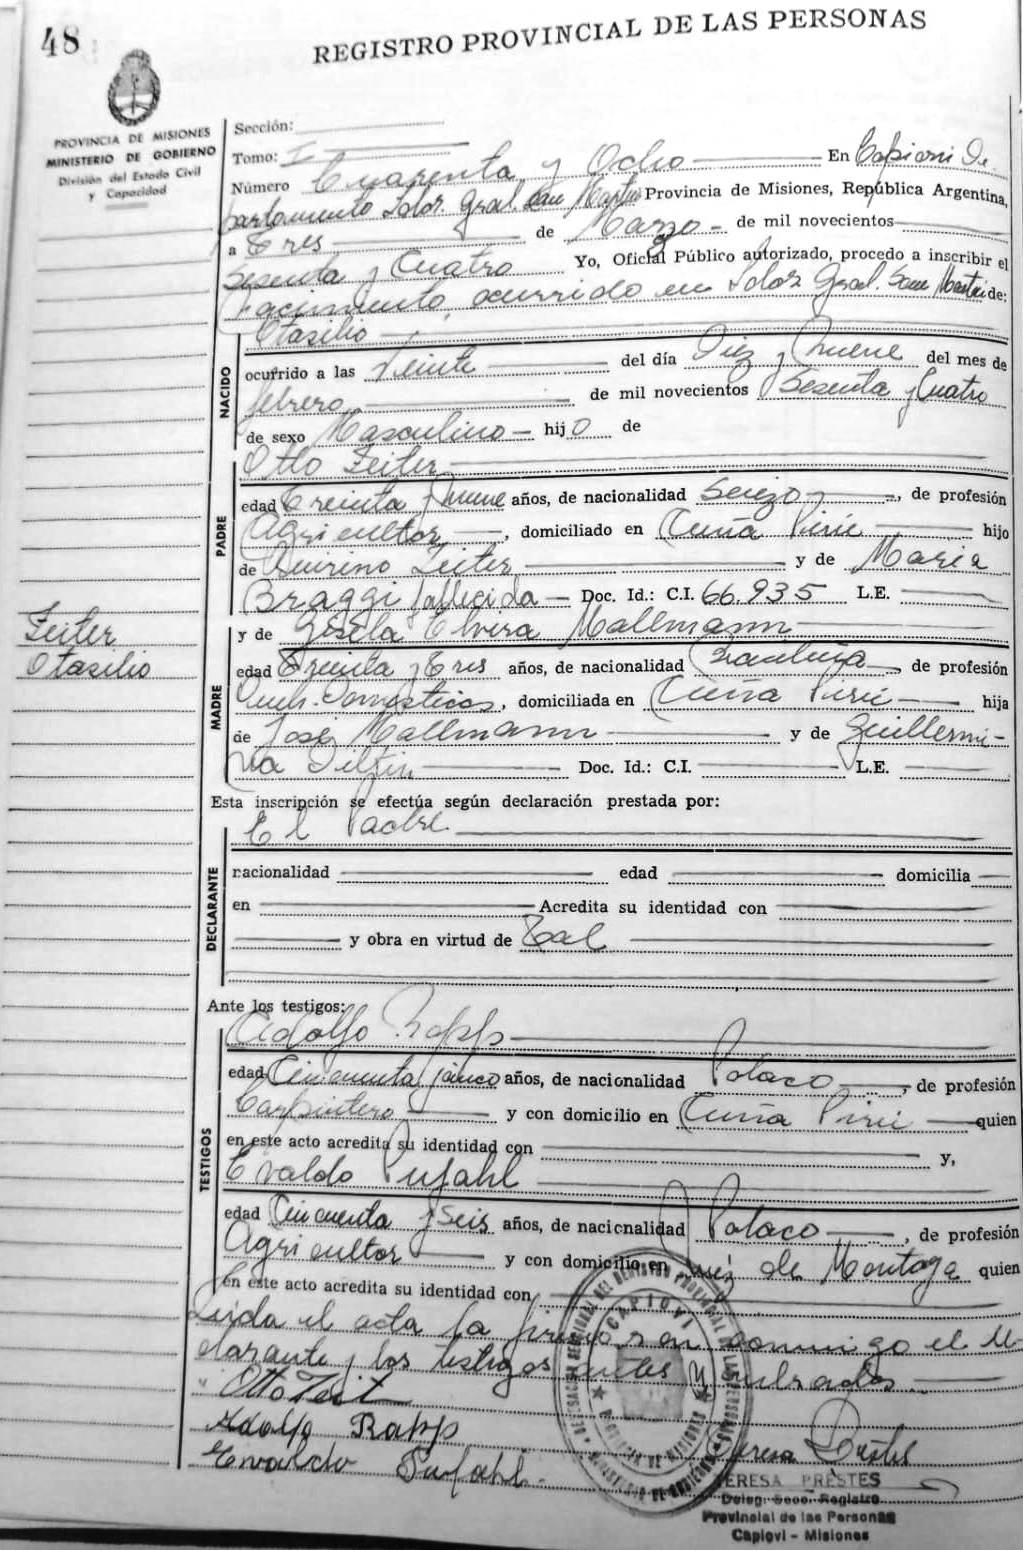 48
REGISTRO PROVINCIAL DE LAS PERSONAS
PROVINCIA DE MISIONES
MINISTERIO DE GOBIERNO
División del Estado Civil
y Capacidad
Sección:
Tomo: I
Número Cuarenta y Ocho En Capiovi De
partamento Ldor. Gral. San Martin Provincia de Misiones, República Argentina,
a Tres de Marzo de mil novecientos
Sesenta y Cuatro Yo, Oficial Público autorizado, procedo a inscribir el
Nacimiento, ocurrido en Ldor Gral. San Martin de:
Otasilio
NACIDO
ocurrido a las Veinte del día Diez y Nueve del mes de
febrero de mil novecientos Sesenta y Cuatro
de sexo Masculino hijo de
Otto Zeiter
PADRE
edad Treinta y Nueve años, de nacionalidad Suizo, de profesión
Agricultor, domiciliado en Cuña Pirú hijo
de Quirino Zeiter y de Maria
Braggi fallecida Doc. Id.: C.I. 66.935 L.E.
y de Gisela Elvira Mallmann
MADRE
edad Treinta y Tres años, de nacionalidad Brasileña, de profesión
Queh. Domesticos, domiciliada en Cuña Pirú hija
de José Mallmann y de Guillermi-
na Doc. Id.: C.I. L.E.
Zeiter
Otasilio
Esta inscripción se efectúa según declaración prestada por:
El Padre
DECLARANTE
nacionalidad edad domicilia
en Acredita su identidad con
y obra en virtud de Tal
Ante los testigos:
Adolfo Rapp
TESTIGOS
edad Cincuenta y cinco años, de nacionalidad Polaco, de profesión
Carpintero y con domicilio en Cuña Pirú quien
en este acto acredita su identidad con y,
Evaldo Pufahl
edad Cincuenta y Seis años, de nacionalidad Polaco, de profesión
Agricultor y con domicilio en de Montoya quien
en este acto acredita su identidad con
Leida el acta la firman conmigo el de
clarante y los testigos antes nombrados
Otto Zeit
Adolfo Rapp
Ewaldo Pufahl
CAPIOVI
TERESA PRESTES
Deleg. Secc. Registro
Provincial de las Personas
Capioví - Misiones